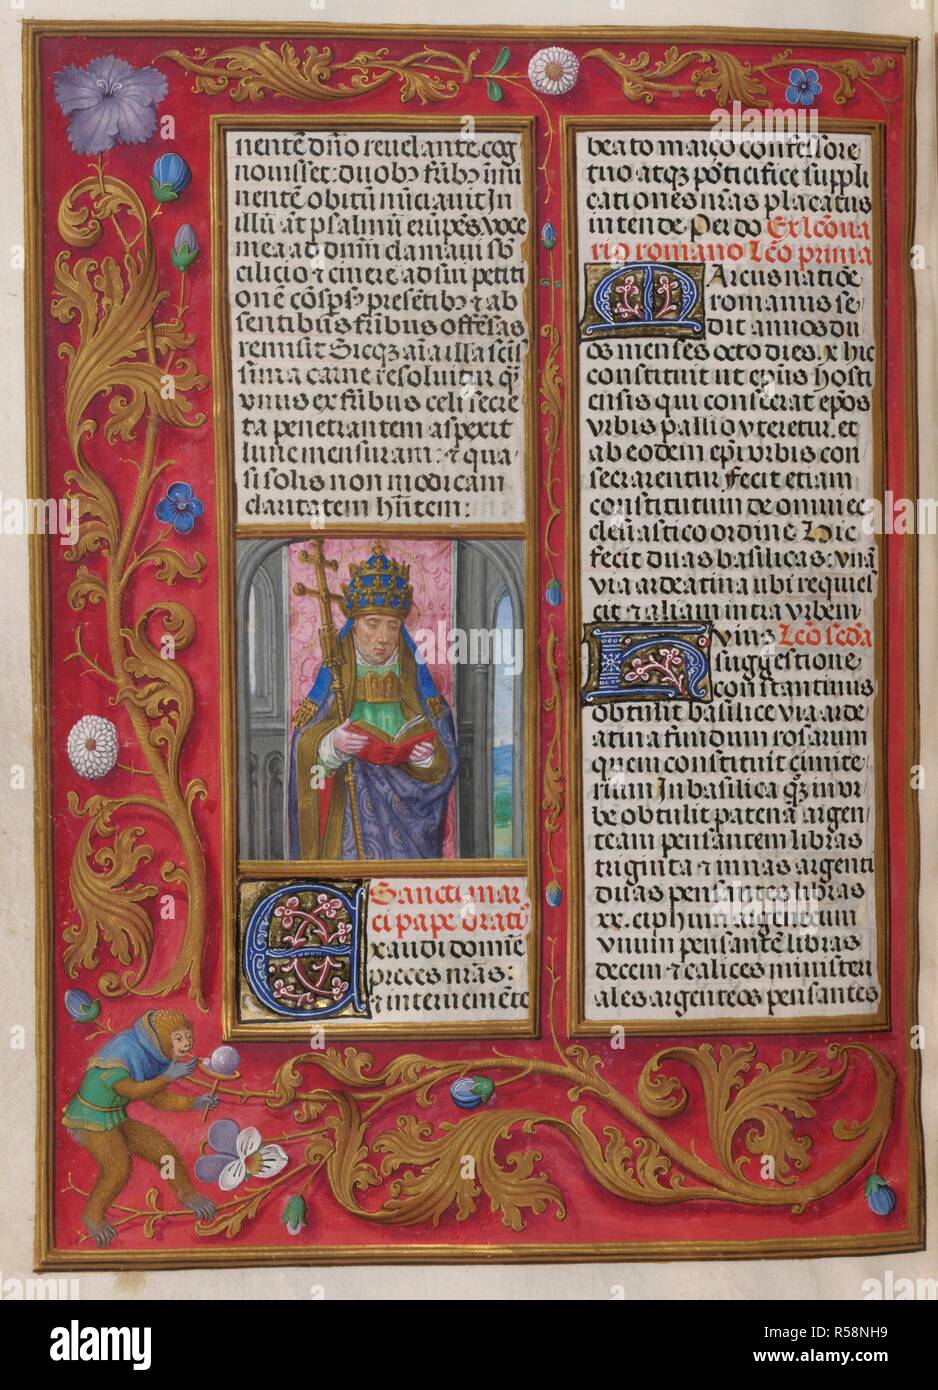 nentē dño revelante cog
novisset: duobꝰ fr̄ibꝰ īmi
nentē obitum nūciavit In
illū āt psalmū erūpēs voce
mea ad dñm clamavi sb̄
cilicio ⁊ cinere ad sui petiti
onē cōspsꝰ presētibꝰ ⁊ ab
sentibus fr̄ibus offesas
remisit Sicqꝫ aīa illa scīs
sima carne resolvitur qm̄
vnus ex fr̄ibus celi secre
ta penetrantem aspexit
lunc mensuram: ⁊ qua
si solis non modicam
claritatem hn̄tem:
Sancti mar
ci pape Oratiō
Exaudi domīe
preces nr̄as:
⁊ interveniēte
beato marco confessore
tuo atqꝫ pōtifice suppli
cationes nr̄as placatus
intende Per do Ex lc̄ona
rio romano Lc̄o prima
Marcus natiōe
romanus se
dit annos du
os menses octo dies. x hic
constituit ut ep̄us hosti
ensis qui conscerat ep̄os
vrbis pallio vteretur. et
ab eodem ep̄i vrbis con
secrarentur Fecit etiam
constitutum de omni ec
clesiastico ordine Hic
fecit duas basilicas: vnā
via ardeatina ubi requies
cit ⁊ aliam intra vrbem
Huius Lc̄o sc̄da
suggestione
constantinus
obtulit basilice via arde
atina fundum rosarum
quem constituit cimite
rium In basilica qꝫ in vr
be obtulit patenā argen
team pensantem libras
triginta ⁊ amas argenti
duas pensantes libras
xx. ciphum argenteum
vnum pensantē libras
decem ⁊ calices minister
iales argenteos pensantes
alamy
alamy
Image ID: R58NH9
www.alamy.com